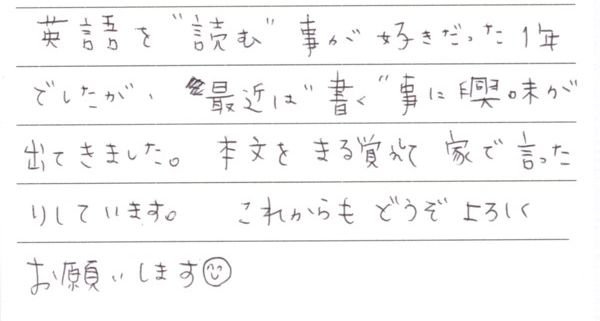 英語を"読む"事が好きだった1年
でしたが、最近は"書く"事に興味が
出てきました。本文をまる覚えして家で言った
りしています。これからもどうぞよろしく
お願いします☺